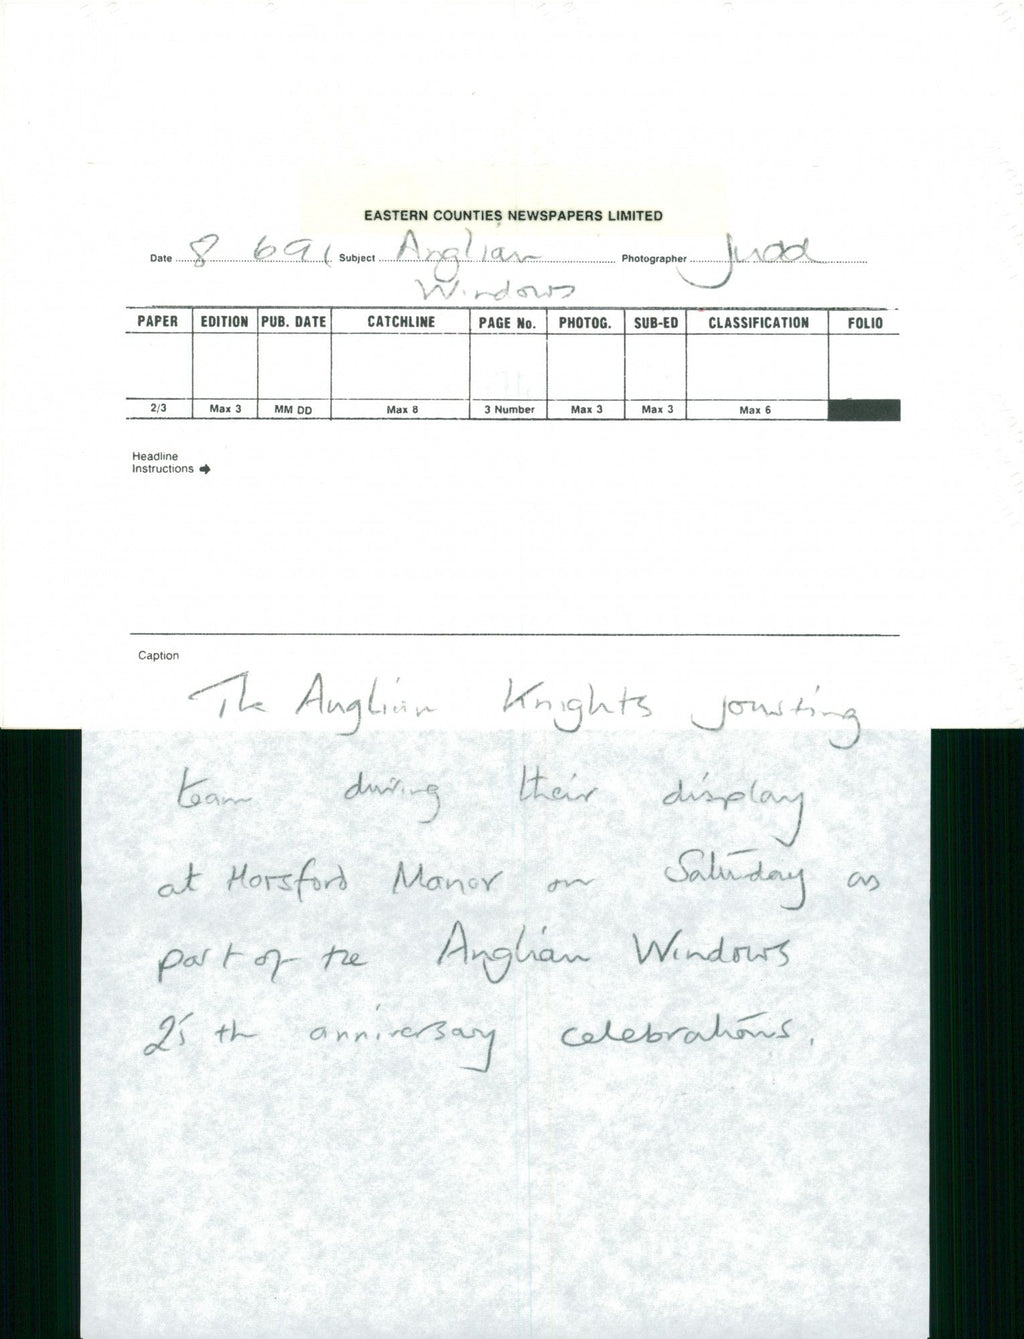 EASTERN COUNTIES NEWSPAPERS LIMITED
Date 8 6 91 Subject Anglian Photographer Judd
Windows
PAPER EDITION PUB. DATE CATCHLINE PAGE No. PHOTOG. SUB-ED CLASSIFICATION FOLIO
2/3 Max 3 MM DD Max 8 3 Number Max 3 Max 3 Max 6
Headline
Instructions
Caption
The Anglian Knights jousting
team during their display
at Horsford Manor on Saturday as
part of the Anglian Windows
25th anniversary celebrations.